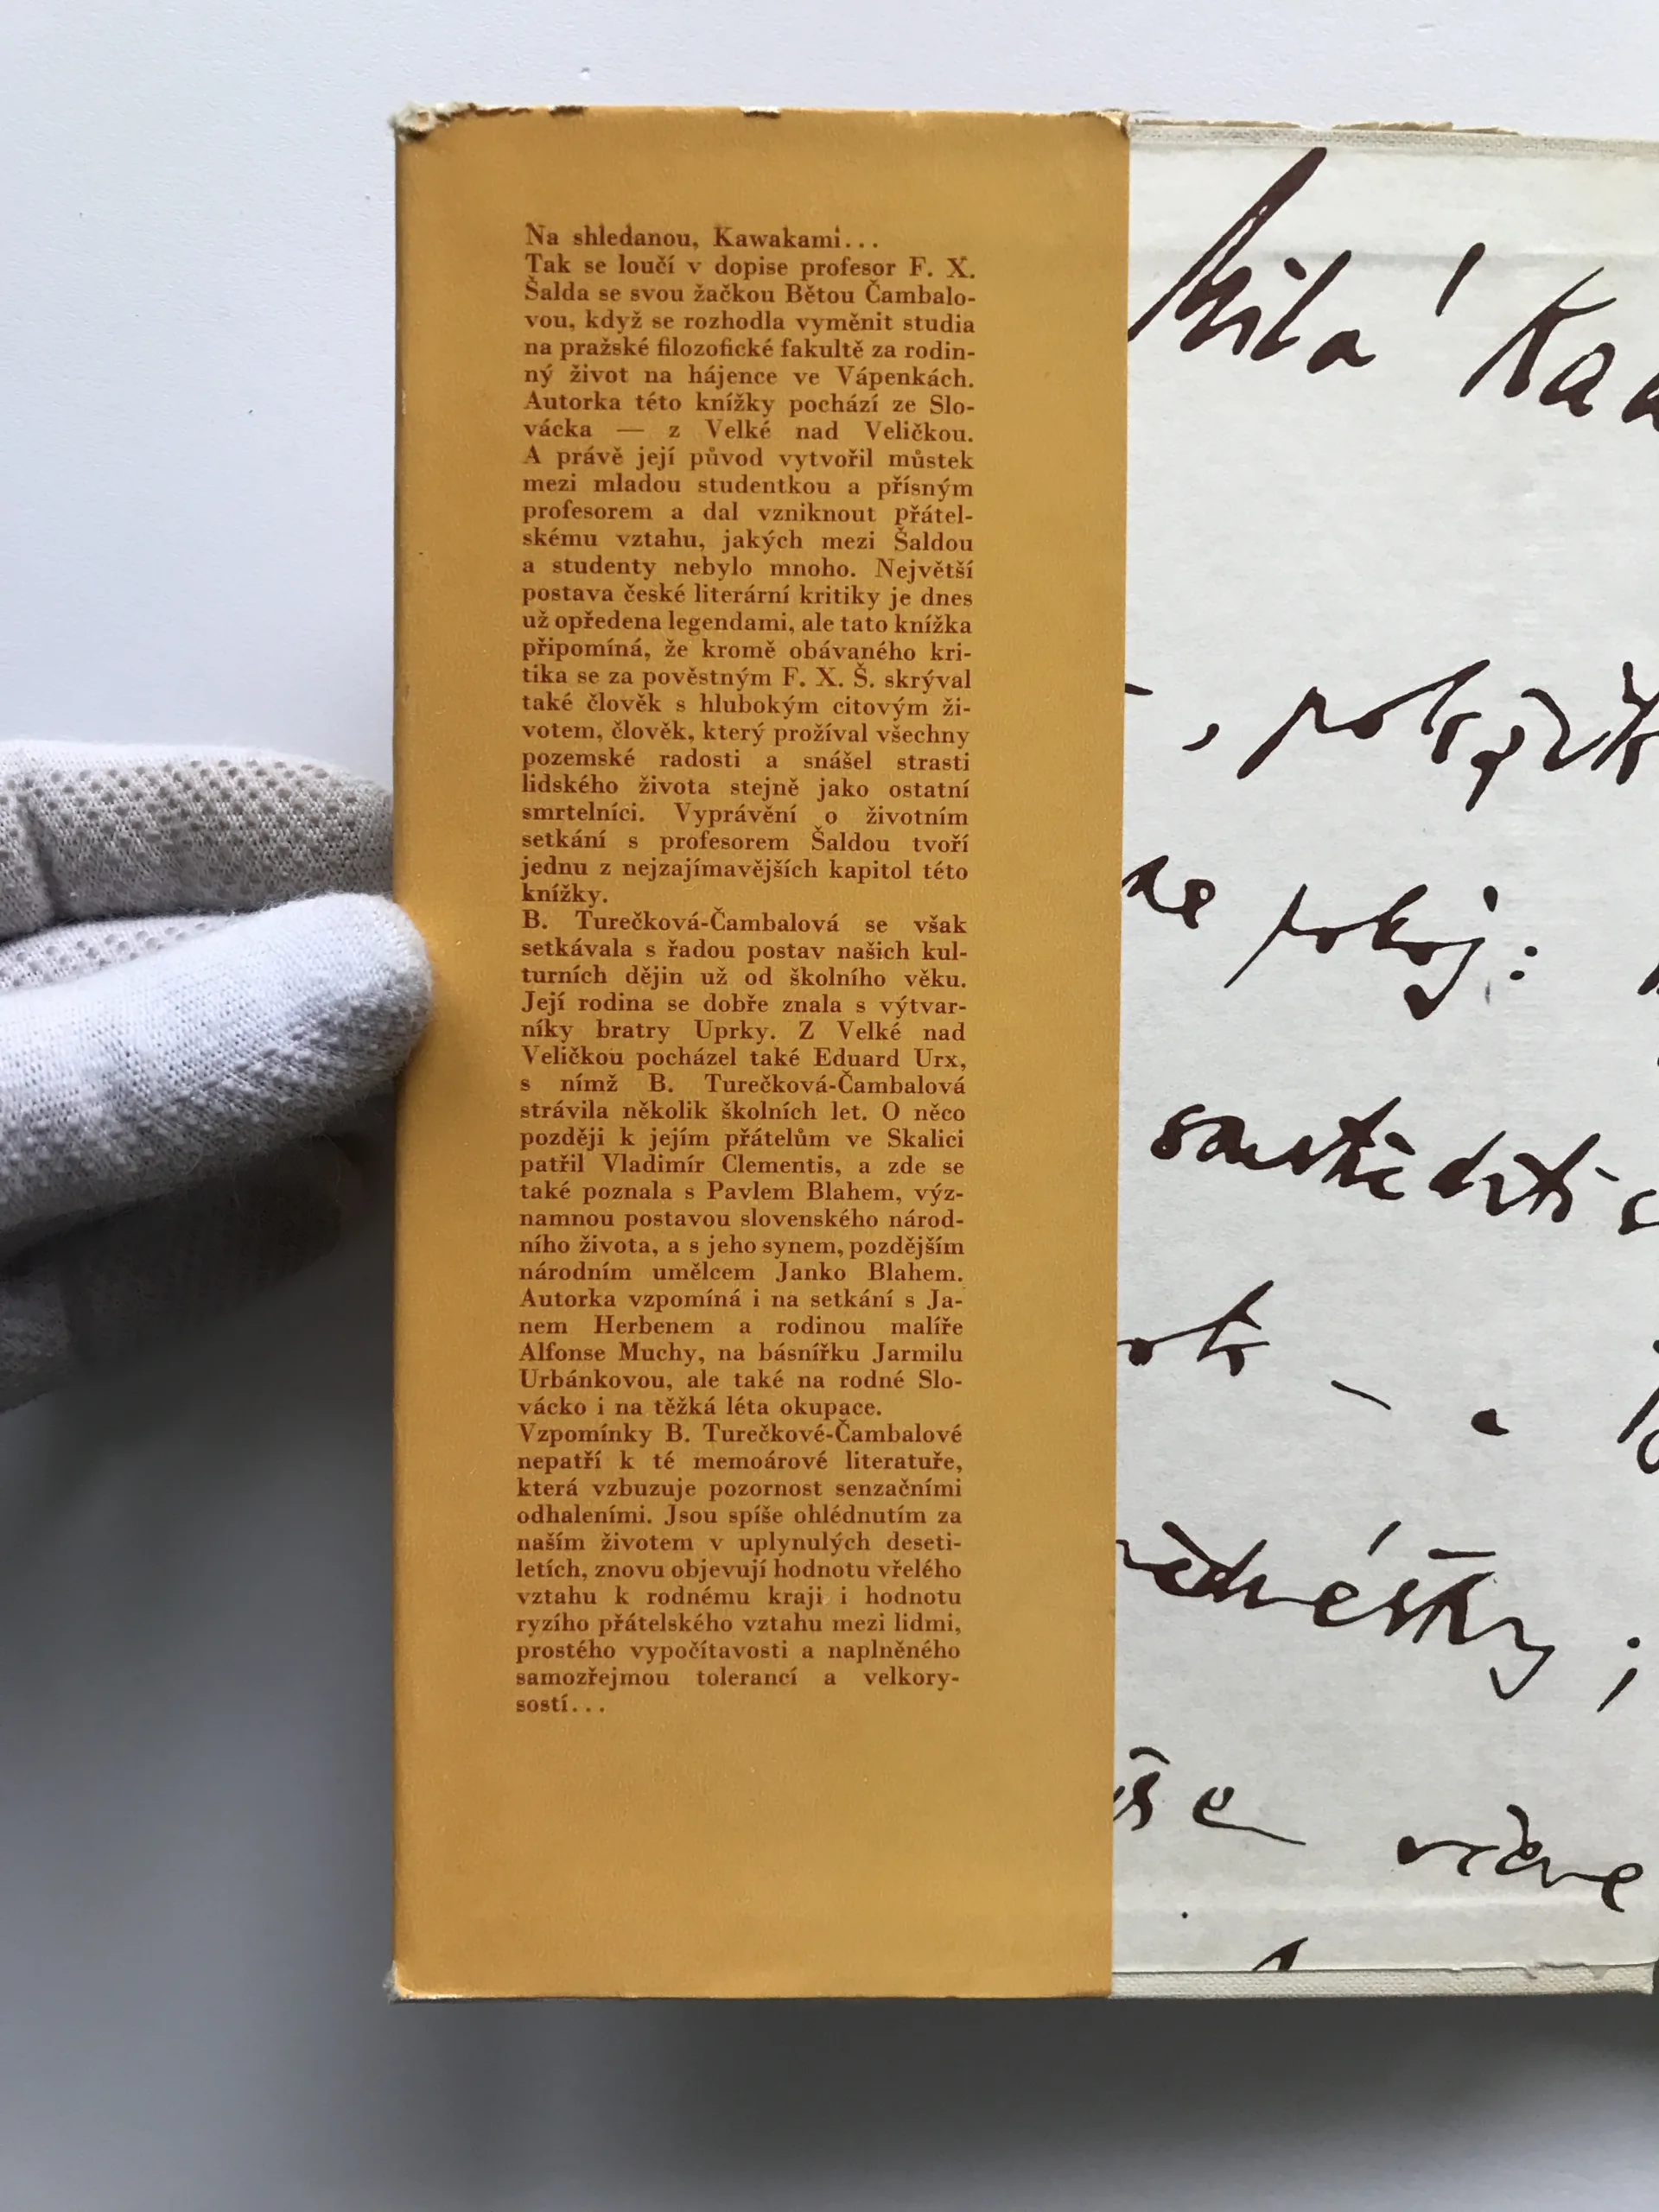 Na shledanou, Kawakami...
Tak se loučí v dopise profesor F. X.
Šalda se svou žačkou Bětou Čambalo-
vou, když se rozhodla vyměnit studia
na pražské filozofické fakultě za rodin-
ný život na hájence ve Vápenkách.
Autorka této knížky pochází ze Slo-
vácka — z Velké nad Veličkou.
A právě její původ vytvořil můstek
mezi mladou studentkou a přísným
profesorem a dal vzniknout přátel-
skému vztahu, jakých mezi Šaldou
a studenty nebylo mnoho. Největší
postava české literární kritiky je dnes
už opředena legendami, ale tato knížka
připomíná, že kromě obávaného kri-
tika se za pověstným F. X. Š. skrýval
také člověk s hlubokým citovým ži-
votem, člověk, který prožíval všechny
pozemské radosti a snášel strasti
lidského života stejně jako ostatní
smrtelníci. Vyprávění o životním
setkání s profesorem Šaldou tvoří
jednu z nejzajímavějších kapitol této
knížky.
B. Turečková-Čambalová se však
setkávala s řadou postav našich kul-
turních dějin už od školního věku.
Její rodina se dobře znala s výtvar-
níky bratry Uprky. Z Velké nad
Veličkou pocházel také Eduard Urx,
s nímž B. Turečková-Čambalová
strávila několik školních let. O něco
později k jejím přátelům ve Skalici
patřil Vladimír Clementis, a zde se
také poznala s Pavlem Blahem, výz-
namnou postavou slovenského národ-
ního života, a s jeho synem, pozdějším
národním umělcem Janko Blahem.
Autorka vzpomíná i na setkání s Ja-
nem Herbenem a rodinou malíře
Alfonse Muchy, na básnířku Jarmilu
Urbánkovou, ale také na rodné Slo-
vácko i na těžká léta okupace.
Vzpomínky B. Turečkové-Čambalové
nepatří k té memoárové literatuře,
která vzbuzuje pozornost senzačními
odhaleními. Jsou spíše ohlédnutím za
naším životem v uplynulých deseti-
letích, znovu objevují hodnotu vřelého
vztahu k rodnému kraji i hodnotu
ryzího přátelského vztahu mezi lidmi,
prostého vypočítavosti a naplněného
samozřejmou tolerancí a velkory-
sostí...
Milá Ka
pokoj: